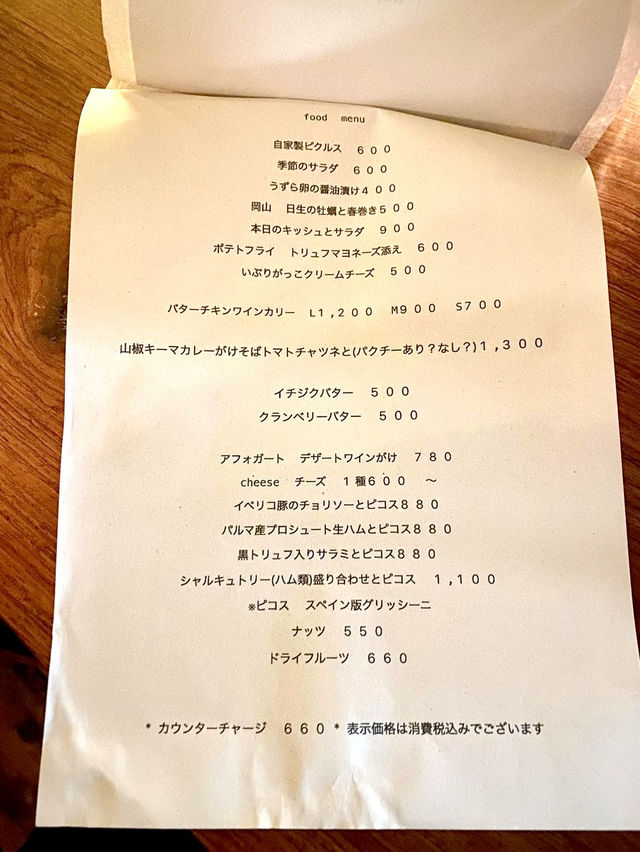 food menu
自家製ピクルス ６００
季節のサラダ ６００
うずら卵の醤油漬け４００
岡山 日生の牡蠣と春巻き５００
本日のキッシュとサラダ ９００
ポテトフライ トリュフマヨネーズ添え ６００
いぶりがっこクリームチーズ ５００
バターチキンワインカリー Ｌ１,２００ Ｍ９００ Ｓ７００
山椒キーマカレーがけそばトマトチャツネと(パクチーあり？なし？)１,３００
イチジクバター ５００
クランベリーバター ５００
アフォガート デザートワインがけ ７８０
cheese チーズ １種６００ ～
イベリコ豚のチョリソーとピコス８８０
パルマ産プロシュート生ハムとピコス８８０
黒トリュフ入りサラミとピコス８８０
シャルキュトリー(ハム類)盛り合わせとピコス １,１００
※ピコス スペイン版グリッシーニ
ナッツ ５５０
ドライフルーツ ６６０
* カウンターチャージ ６６０ * 表示価格は消費税込みでございます